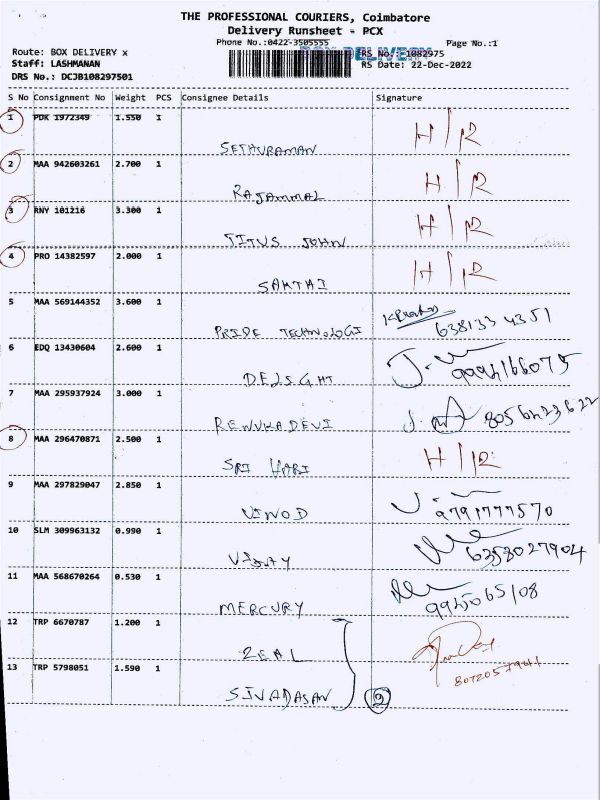 THE PROFESSIONAL COURIERS, Coimbatore
Delivery Runsheet - PCX
Phone No.:0422-3505555 Page No.:1
Route: BOX DELIVERY x BOX DELIVERY RS No.: 1082975
Staff: LASHMANAN RS Date: 22-Dec-2022
DRS No.: DCJB108297501
S No Consignment No Weight PCS Consignee Details Signature
1 PDK 1972349 1.550 1
SETHURAMAN H/R
2 MAA 942603261 2.700 1
RAJAMMAL H/R
3 RNY 101216 3.300 1
TITUS JOHN H/R
4 PRO 14382597 2.000 1
SAKTHI H/R
5 MAA 569144352 3.600 1
PRIDE TECHNOLOGI 638133 4351
6 EDQ 13430604 2.600 1
DELSGHT
7 MAA 295937924 3.000 1
RENUKADEVI 8056423622
8 MAA 296470871 2.500 1
SRI HARI H/R
9 MAA 297829047 2.850 1
VINOD 9791777570
10 SLM 309963132 0.990 1
VIJAY 6358027904
11 MAA 568670264 0.530 1
MERCURY
12 TRP 6670787 1.200 1
ZEAL
13 TRP 5798051 1.590 1
SIVADASAN 9